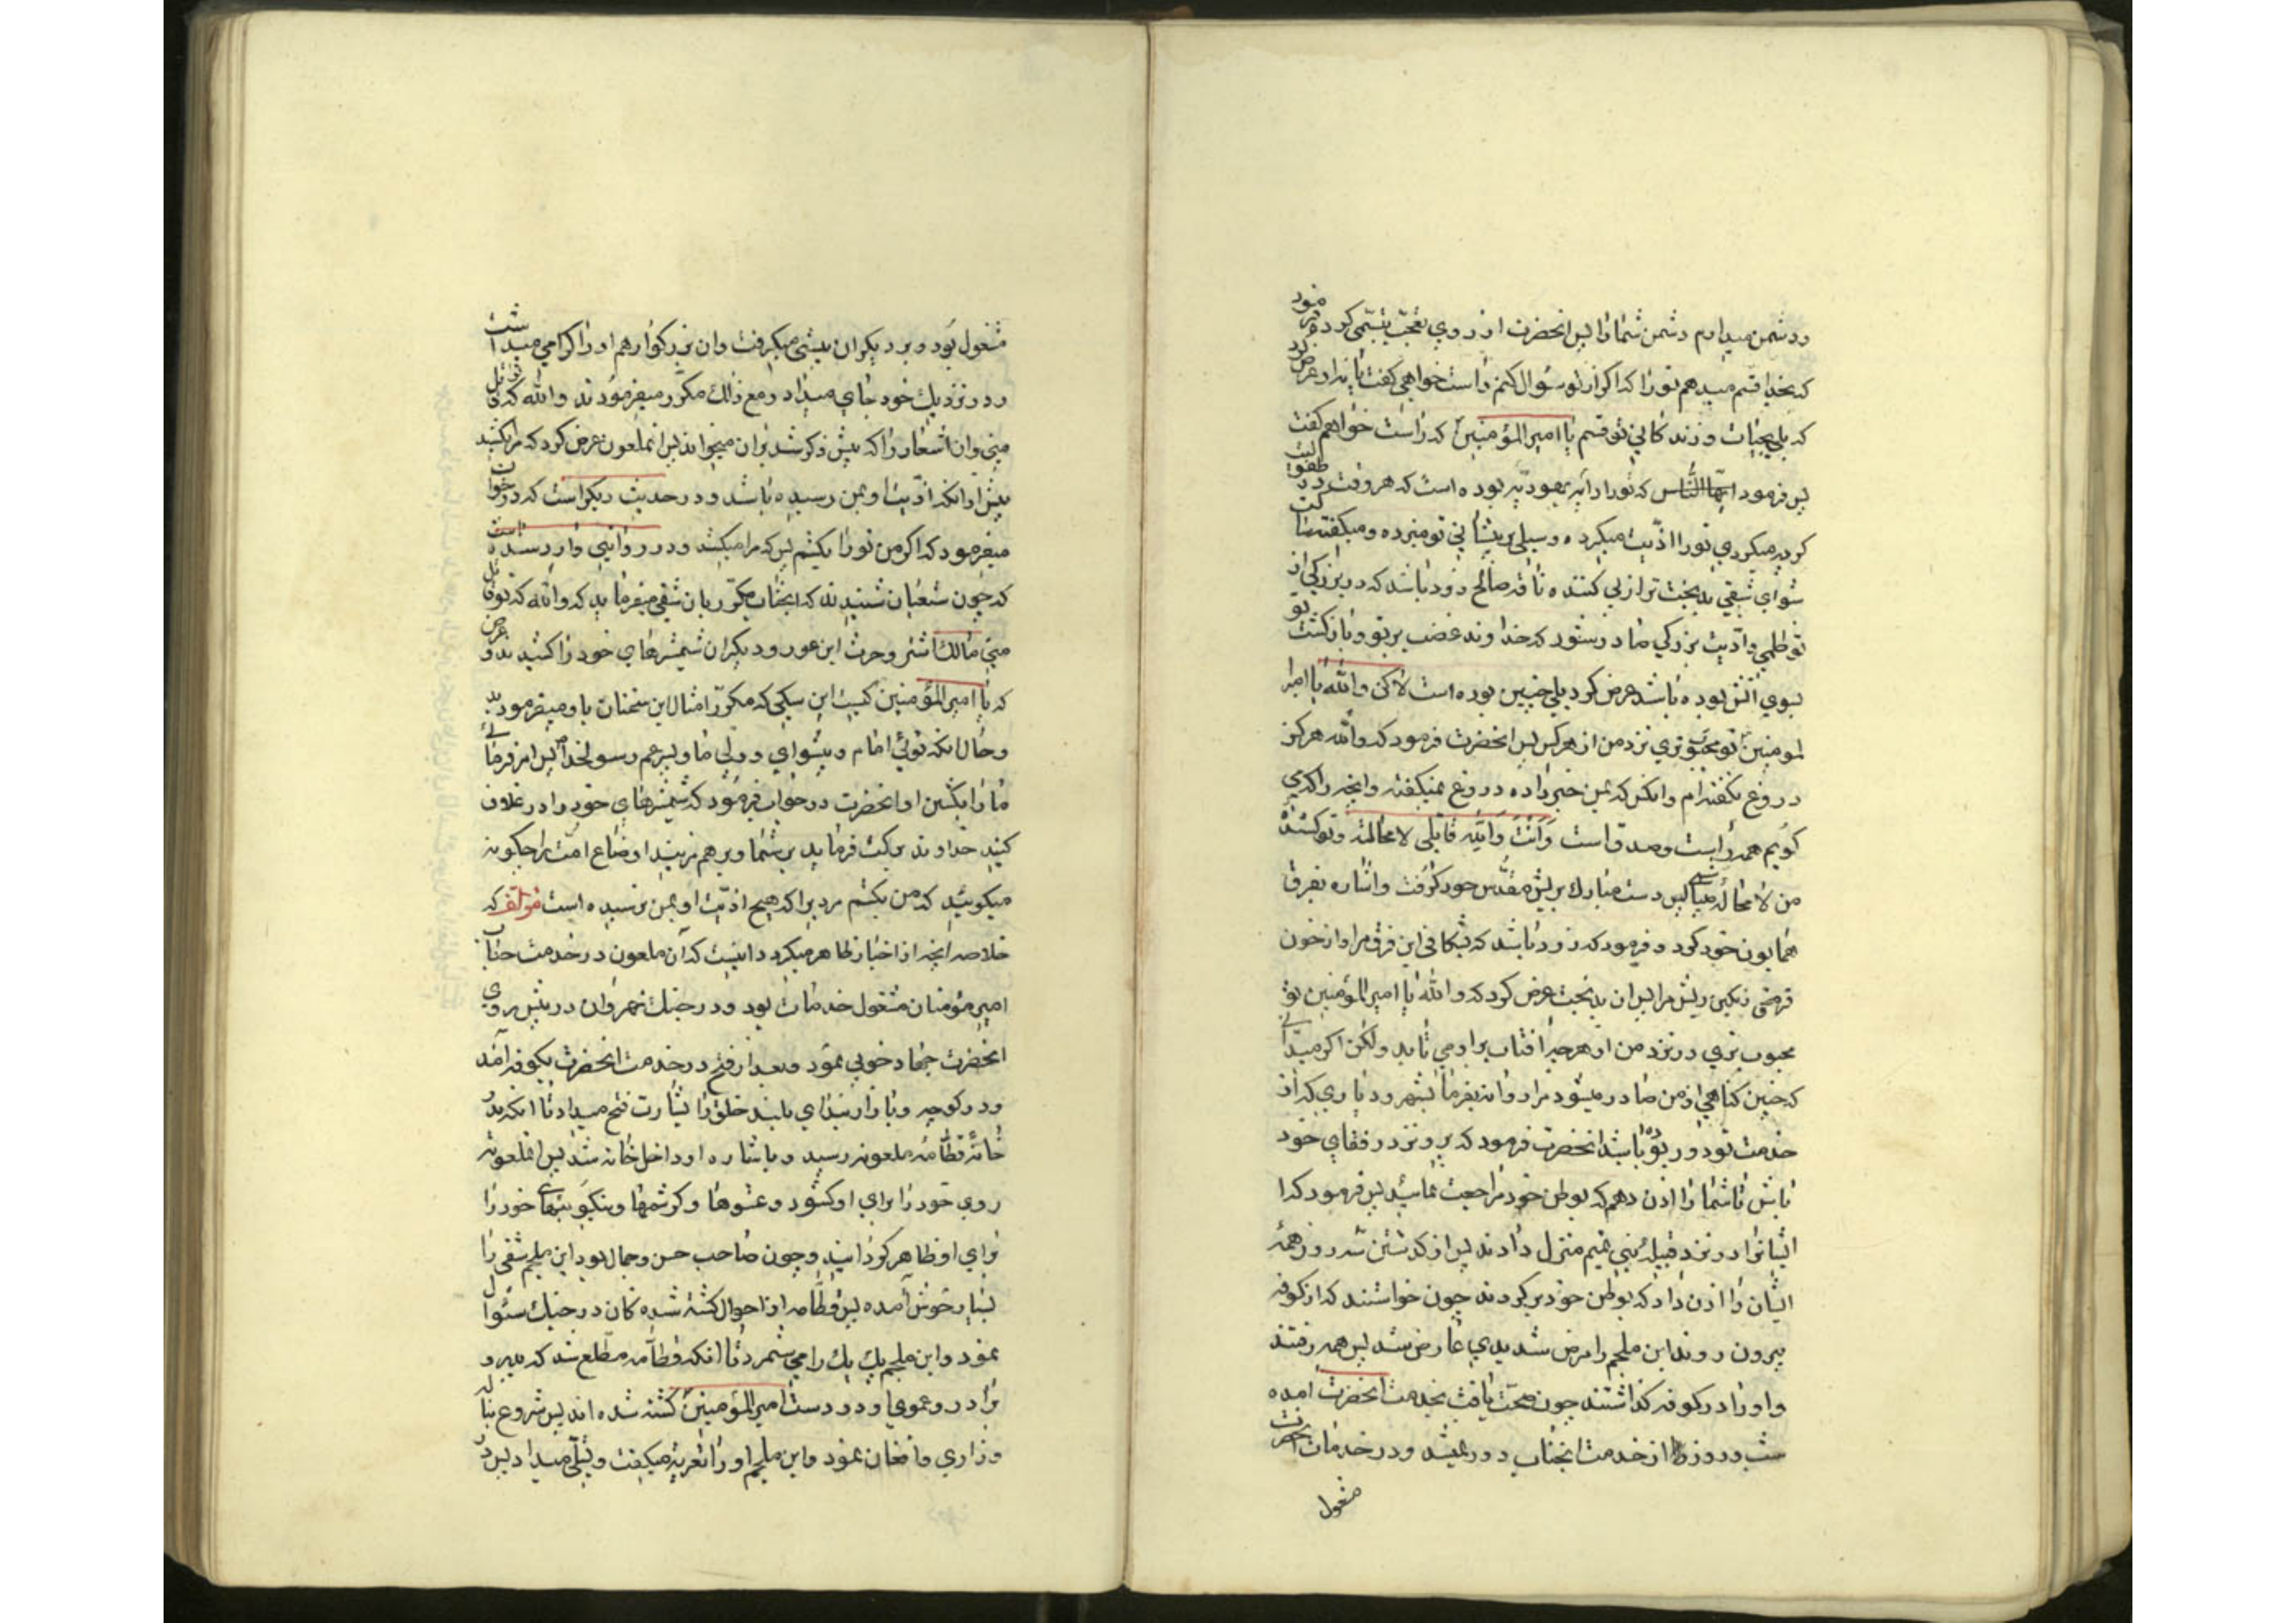 ودشمن میدارم دشمن شما را پس انحضرت از روی تعجب تبسمی کرده فرمود
که بخدا قسم میدهم تو را که اکر از تو سؤال کنم راست خواهی کفت یا نه او عرض کرد
که بلی بحیات و زندکانی تو قسم یا امیر المؤمنین که راست خواهم کفت
پس فرمود که تو را دایه یهودیه بوده است که هر وقت در طفولیت
کریه میکردی تو را اذیت میکرده وسیلی بر پیشانی تو میزده ومیکفته ساکت
شو ای شقی بدبخت تر از پی کننده ناقه صالح زود باشد که در بزرکی از
تو ظلمی واذیت بزرکی صادر شود که خداوند غضب بر تو و بازکشت تو
بسوی اتش بوده باشد عرض کرد بلی چنین بوده است لاکن والله یا امیرا
لمومنین تو محبوب تری نزد من از هر کس پس انحضرت فرمود که والله هرکز
دروغ نکفته ام وانکس که بمن خبر داده دروغ نمیکفته وانچه را که می
کویم همه راست وصدق است وَاَنْتَ وَاللهِ قاتلی لا محالة وتو کشندهٔ
من لا محاله میباشی پس دست مبارک بریش مقدس خود کرفت واشاره بفرق
همایون خود کرد و فرمود که زود باشد که بشکافی این فرق مرا و از خون
فرقم رنکین کنی ریش مرا پس ان بدبخت عرض کرد که والله یا امیر المؤمنین تو
محبوب تری در نزد من از هرچه افتاب بر او می تابد ولکن اکر میدانی
که چنین کناهی از من صادر میشود مرا روانه بفرما بشهر ودیاری که از
خدمت تو دور بوده باشد انحضرت فرمود که برو نزد رفقای خود
باش تا شما را اذن دهم که بوطن خود مراجعت نمائید پس فرمود که ا
ایشانرا در نزد قبیلهٔ بنی تمیم منزل دادند پس از کذشتن سه روز همهٔ
ایشان را اذن داد که بوطن خود برکردند چون خواستند که از کوفه
بیرون روند ابن ملجم را مرض شدیدی عارض شد پس همه رفتند
و او را در کوفه کذاشتند چون صحت یافت بخدمت انحضرت امده
شب و روز از خدمت انجناب دور نمیشد ودر خدمات انحضرت
مشغول
مشغول بود و بر دیکران پیشی میکرفت وان بزرکوار هم او را کرامی میداشت
ودر نزدیک خود جای میداد ومع ذلک مکرر میفرمودند والله که تو قاتل
منی وان اشعار را که پیش ذکر شد بر ان میخواند پس انملعون عرض کرد که مرا بکشید
پیش از انکه اذیت او بمن رسیده باشد ودر حدیث دیکر است که در جواب
میفرمود که اکر من تو را بکشم پس که مرا میکشد ودر روایتی وارد شده است
که چون شیعیان شنیدند که انجناب مکرر بان شقی میفرماید که والله که تو قاتل
منی مالک اشتر وحرث ابن عور ودیکران شمشیرهای خود را کشیدند و عرض
که یا امیر المؤمنین کیست این سکی که مکرر امثال این سخنان باو میفرمودید
وحال انکه توئی امام و پیشوای و ولی ما و پسر عم رسولخدا پس امر فرمائی
ما را بکشتن او انحضرت در جواب فرمود که شمشیرهای خود را در غلاف
کنید خداوند برکت فرماید بر شما وبر هم نزنید اوضاع امت را چکونه
میکوئید که من بکشم مردیرا که هیچ اذیت او بمن نرسیده است مؤلف که
خلاصه انچه از اخبار ظاهر میکردد اینست که آن ملعون در خدمت جناب
امیر مؤمنان مشغول خدمات بود ودر جنک نهروان در پیش روی
انحضرت جهاد خوبی نمود وبعد از فتح در خدمت انحضرت بکوفه آمد
ودر کوچه وبازار بندای بلند خلق را بشارت فتح میداد تا انکه بدر
خانهٔ قطامهٔ ملعونه رسید وباشاره او داخل خانه شد پس انملعونه
روی خود را برای او کشود وعشوها وکرشمها ونیکوئیهای خود را
برای او ظاهر کردانید وچون صاحب حسن وجمال بود ابن ملجم شقی را
بسیار خوش آمده پس قطامه از احوال کشته شده کان در جنک سئوال
نمود وابن ملجم یک یک را می شمرد تا انکه قطامه مطلع شد که پدر و
برادر وعموی او در دست امیر المؤمنین کشته شده اند پس شروع بناله
وزاری وافغان نمود وابن ملجم او را تعزیه میکفت وتسلی میداد پس در